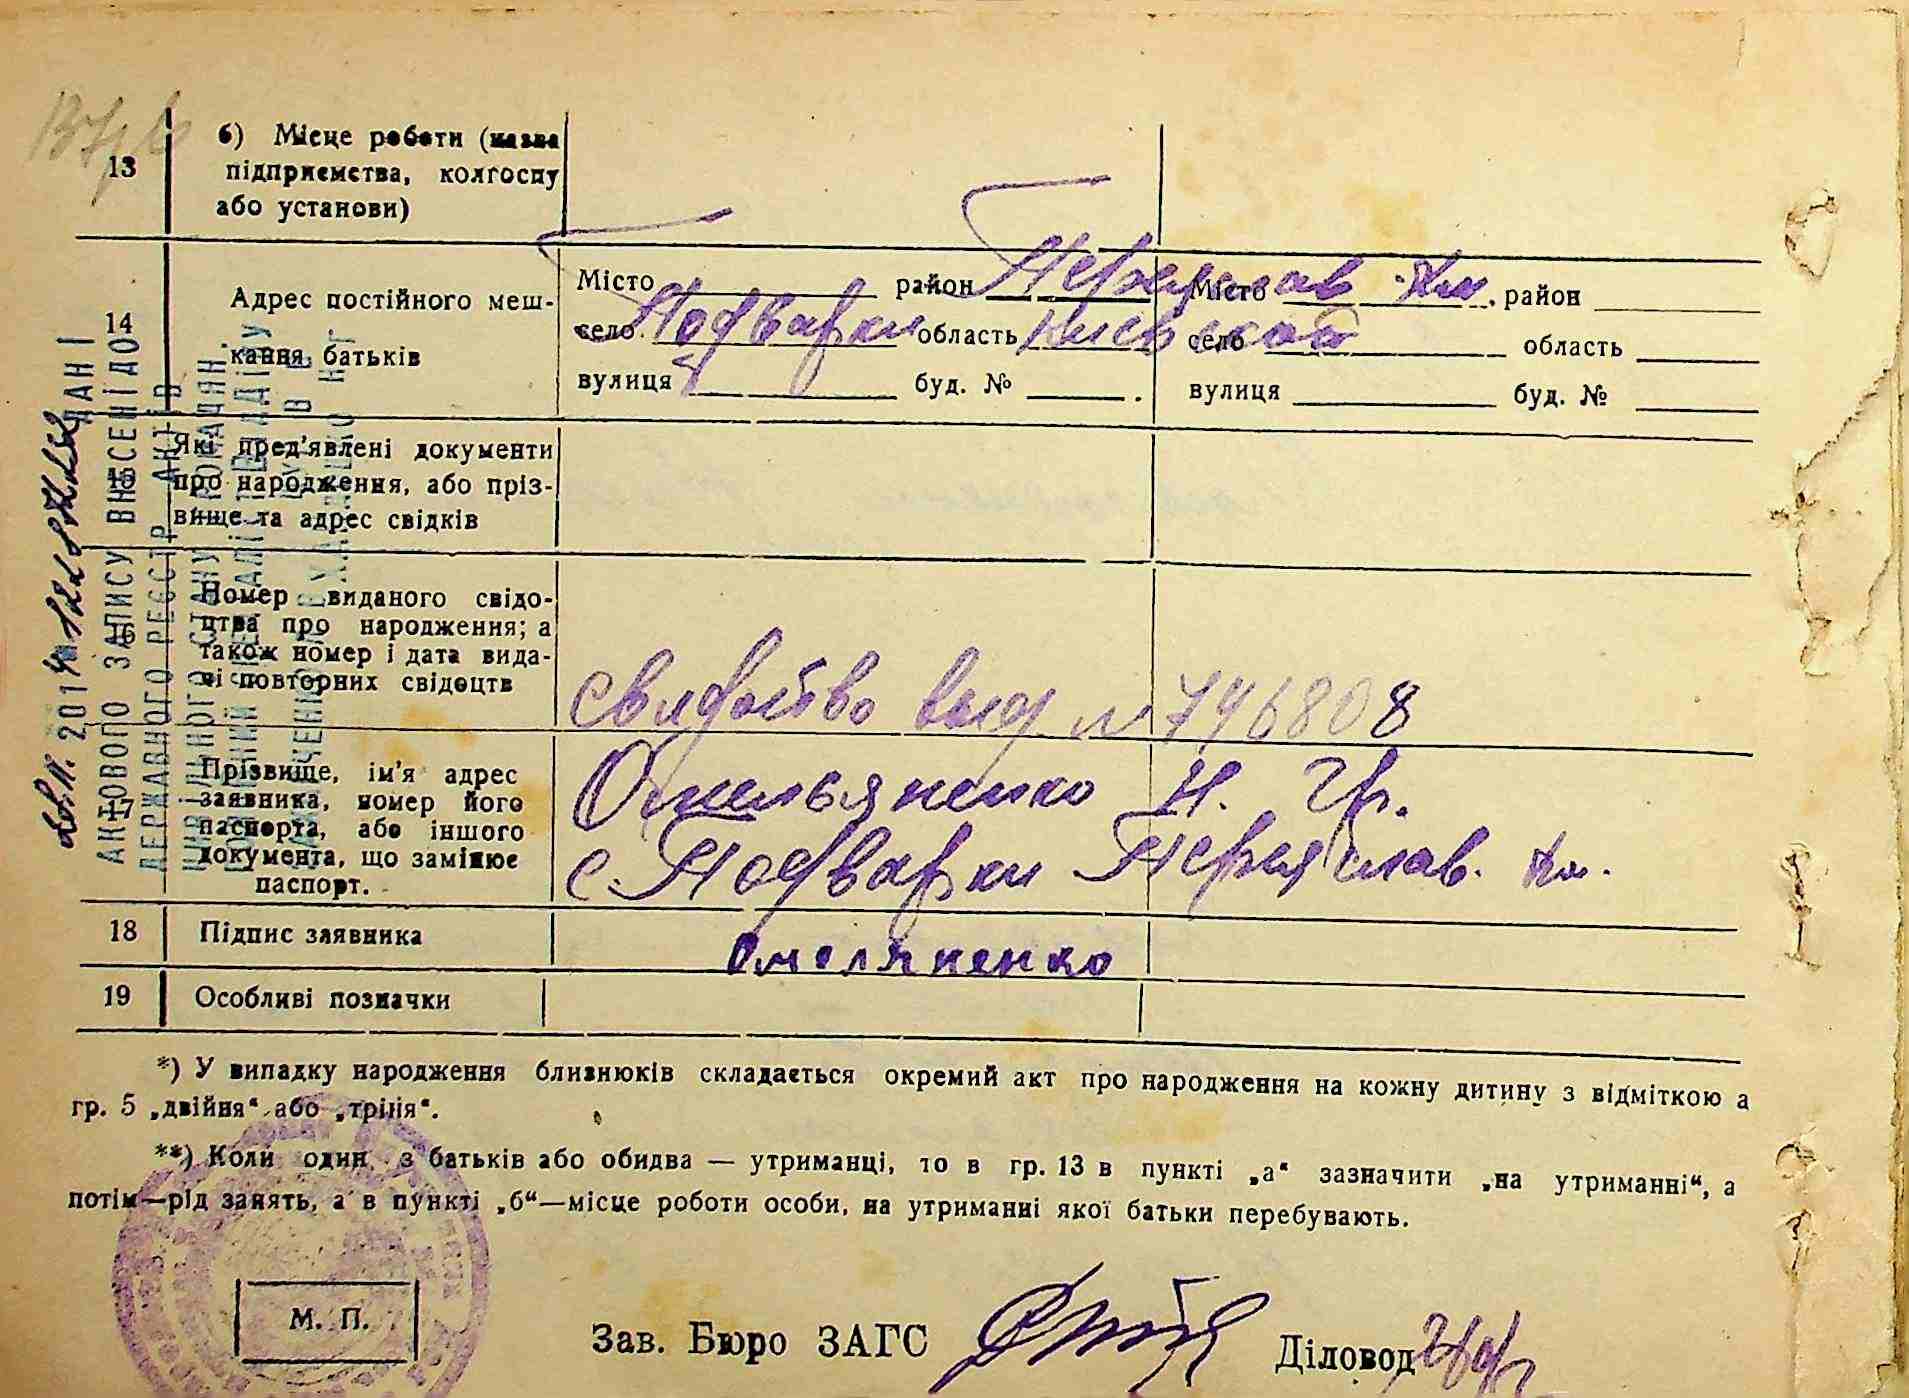 13
б) Місце роботи (назва
підприємства, колгоспу
або установи)
14
Адрес постійного меш-
кання батьків
Місто район Переяслав
село Подварки область Киевской
вулиця буд. №
Місто район
село область
вулиця буд. №
15
Які пред'явлені документи
про народження, або пріз-
вище та адрес свідків
16
Номер виданого свідо-
цтва про народження; а
також номер і дата вида-
чі повторних свідоцтв
свидойтво выд № 746808
17
Прізвище, ім'я адрес
заявника, номер його
паспорта, або іншого
документа, що замінює
паспорт.
Омельяненко Н. Гр.
с. Подварки Переяслав.
18
Підпис заявника
Омеляненко
19
Особливі позначки
*) У випадку народження близнюків складається окремий акт про народження на кожну дитину з відміткою а
гр. 5 „двійня“ або „трійня“.
**) Коли один з батьків або обидва — утриманці, то в гр. 13 в пункті „а“ зазначити „на утриманні“, а
потім—рід занять, а в пункті „б“—місце роботи особи, на утриманні якої батьки перебувають.
М. П.
Зав. Бюро ЗАГС
Діловод
ДАНІ
АКТОВОГО ЗАПИСУ ВНЕСЕНІ ДО
ДЕРЖАВНОГО РЕЄСТР АКТІВ
ЦИВІЛЬНОГО СТАНУ ГРОМАДЯН.
2014